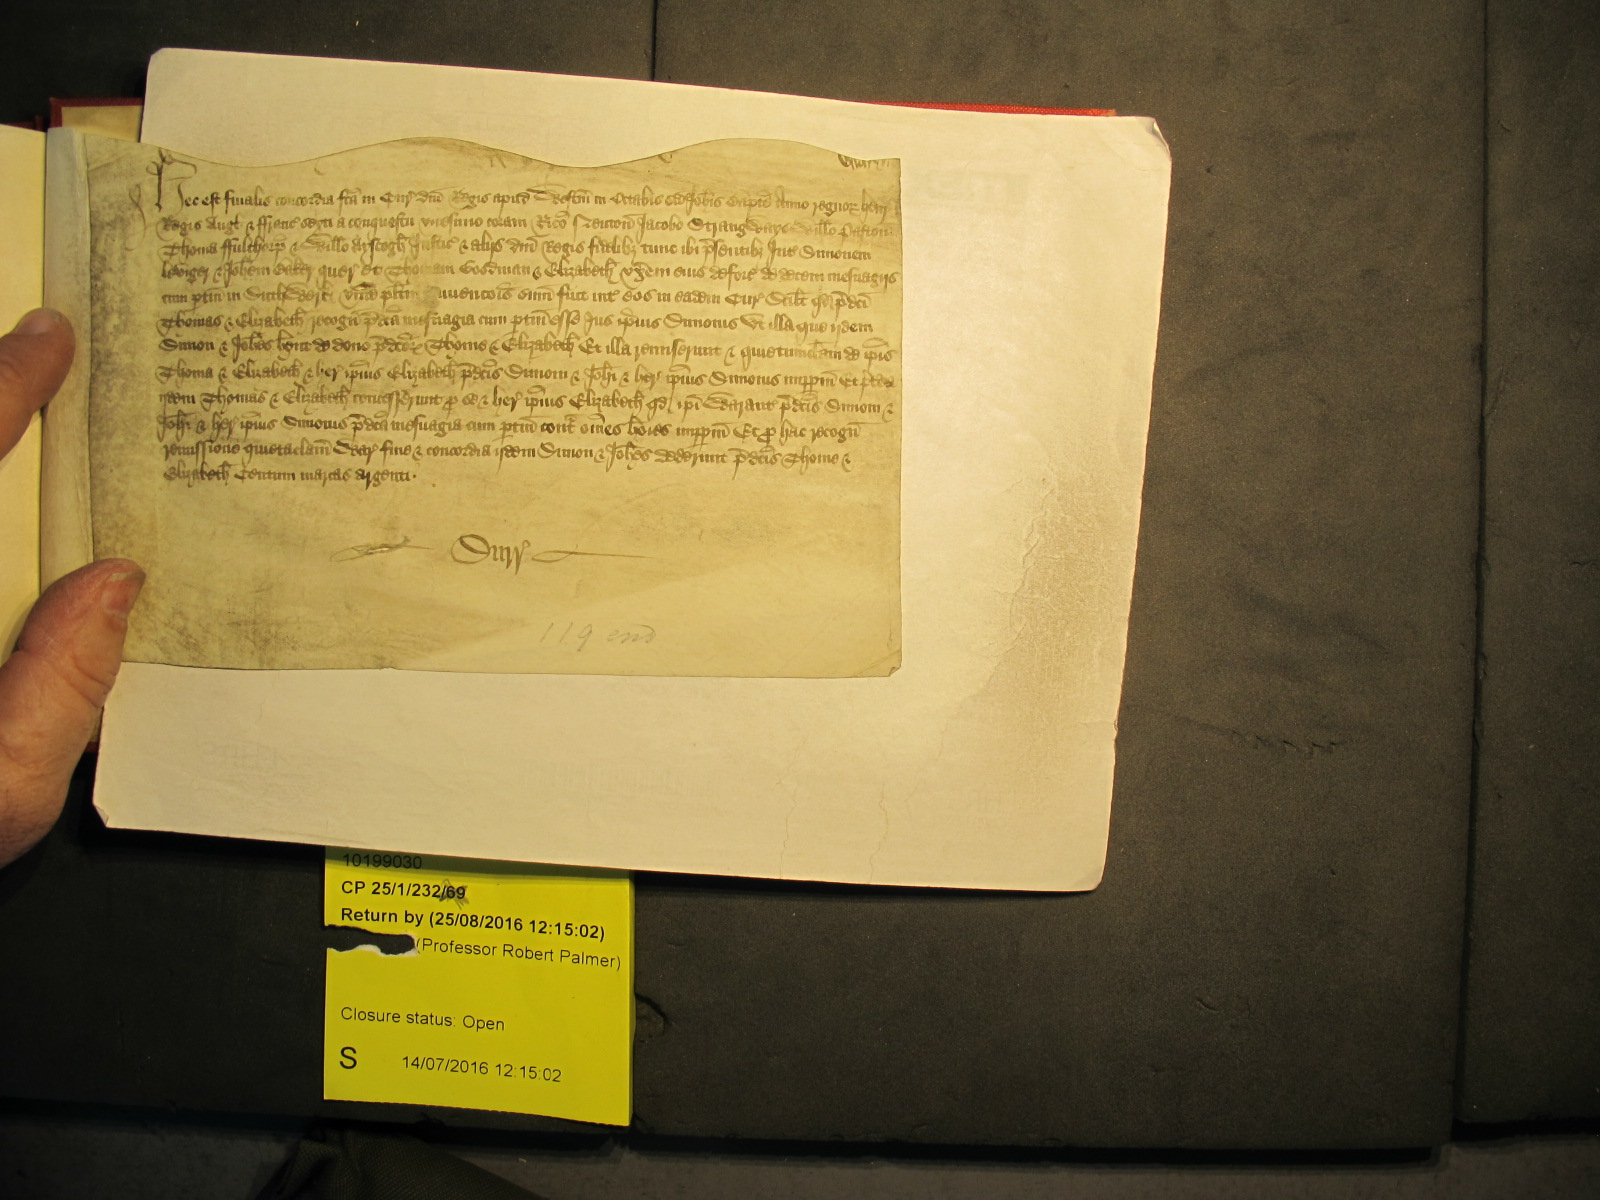 Hec est finalis concordia fca in Cur dni Regis apud Westm in Octabis Sci Johis Bapte Anno regnor Henr
Regis Angl & ffranc sexti a conquestu vicesimo coram Rico Neuton Jacobo Strangways Willo Paston
Thoma ffulthorp & Willo Ayscogh Justic & aliis dni Regis fidelibz tunc ibi psentibz Int Simonem
& Johem quer Et Thomam Godman & Elizabeth vxem eius deforc de decem mesuagiis
cum ptin in Vnde plitm convencois sum fuit int eos in eadem Cur Scilt qd pdci
Thomas & Elizabeth recogn pdca mesuagia cum ptin esse Jus ipius Simonis Vt illa que iidem
Simon & Johes hent de dono pdcor Thome & Elizabeth Et illa remiserunt & quietumclam de ipis
Thoma & Elizabeth & her ipius Elizabeth pdcis Simoni & Johi & her ipius Simonis imppm Et ptea
iidem Thomas & Elizabeth concesserunt p se & her ipius Elizabeth qd ipi Warant pdcis Simoni &
Johi & her ipius Simonis pdca mesuagia cum ptin cont omes hoies imppm Et p hac recogn
remissione quietaclam War fine & concordia iidem Simon & Johes dederunt pdcis Thome &
Elizabeth Centum marcas argenti.
Surr
119
10199030
CP 25/1/232/69
Return by (25/08/2016 12:15:02)
(Professor Robert Palmer)
Closure status: Open
S 14/07/2016 12:15:02